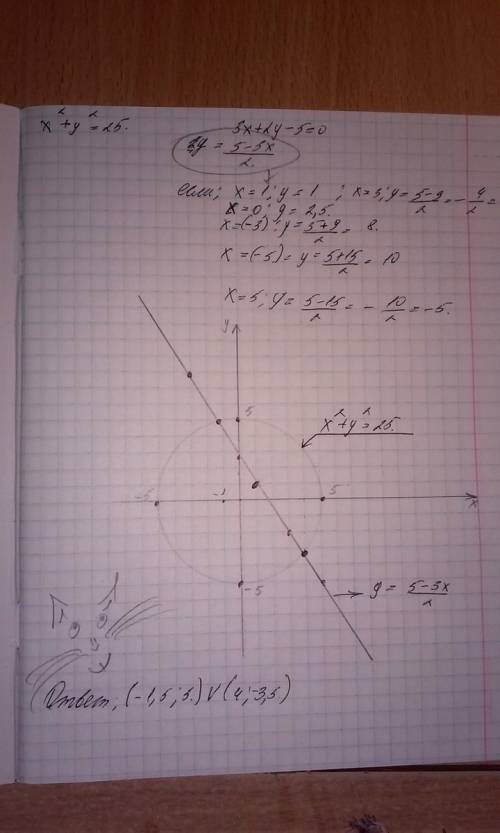 x² + y² = 25.
3x + 2y - 5 = 0
2y = (5 - 3x)/2.
если; x = 1; y = 1 ; x = 3; y = (5 - 9)/2 = - 4/2 =
x = 0; y = 2,5.
x = (-3) ; y = (5 + 9)/2 = 8.
x = (-5) = y = (5 + 15)/2 = 10
x = 5; y = (5 - 15)/2 = - 10/2 = -5.
y
5
x² + y² = 25.
-5 -1 5 x
-5
y = (5 - 3x)/2
Ответ; (-1,5; 5.) V (4; -3,5.)